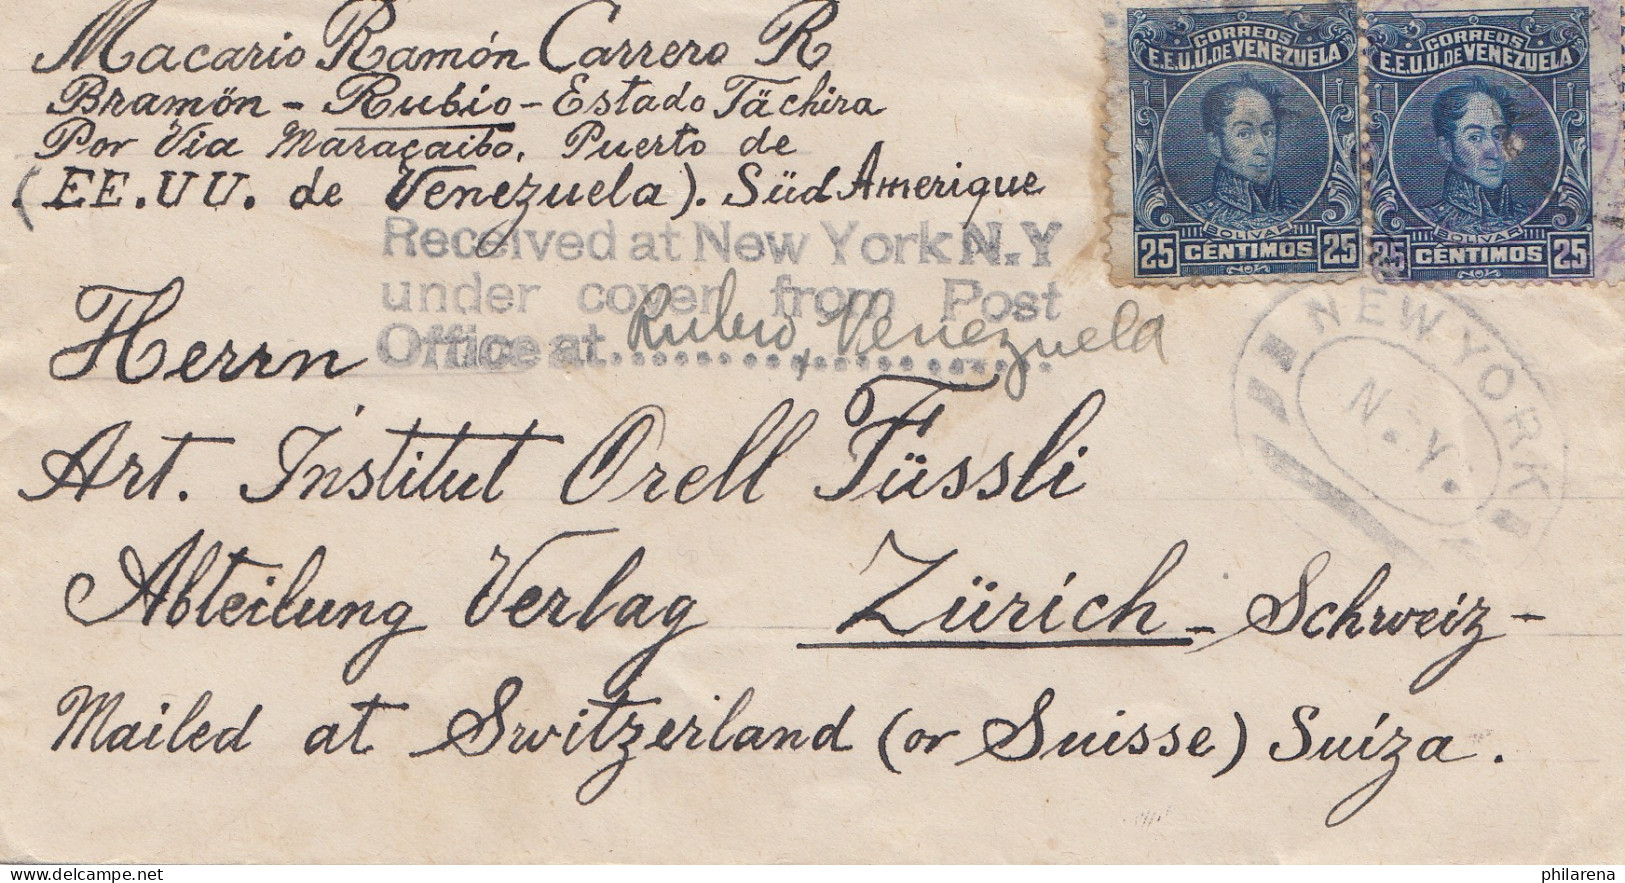 Macario Ramón Carrero R
Bramön - Rubio - Estado Tächira
Por Via Maracaibo, Puerto de
(EE.UU. de Venezuela). Süd Amerique
CORREOS
E.E.U.U. DE VENEZUELA
BOLIVAR
25 CÉNTIMOS 25
CORREOS
E.E.U.U. DE VENEZUELA
BOLIVAR
25 CÉNTIMOS 25
Received at New York N.Y
under cover from Post
Office at Rubio, Venezuela
NEW YORK
N.Y.
Herrn
Art. Institut Orell Füssli
Abteilung Verlag Zürich - Schweiz -
Mailed at Switzerland (or Suisse) Suíza.
delcampe.net
philarena